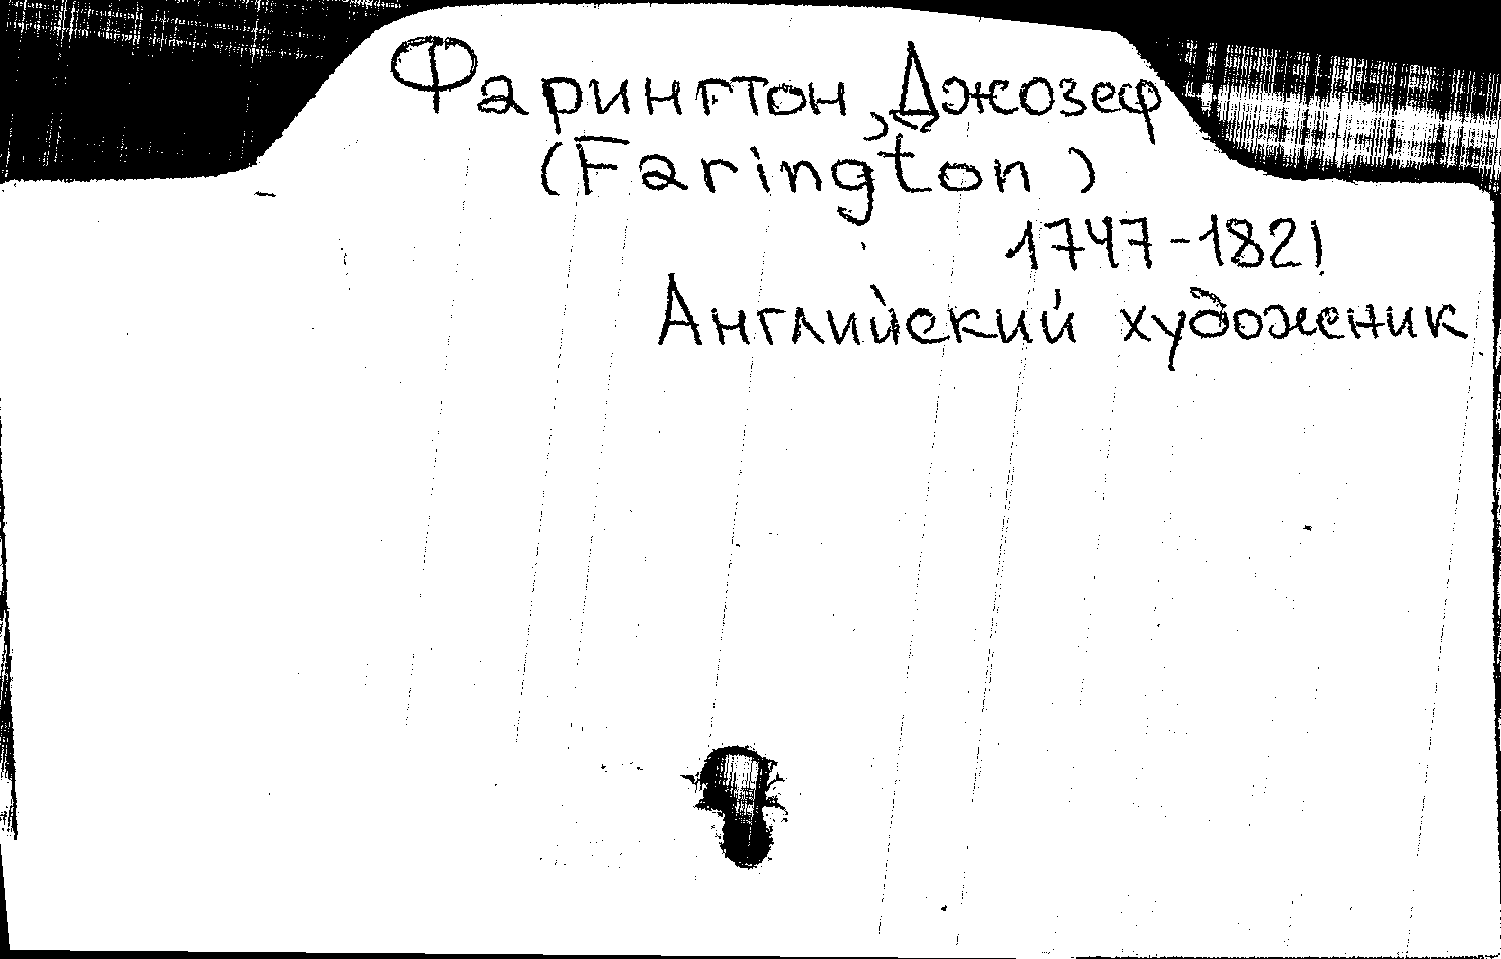 Фарингтон, Джозеф
(Farington)
1747-1821
Английский художник